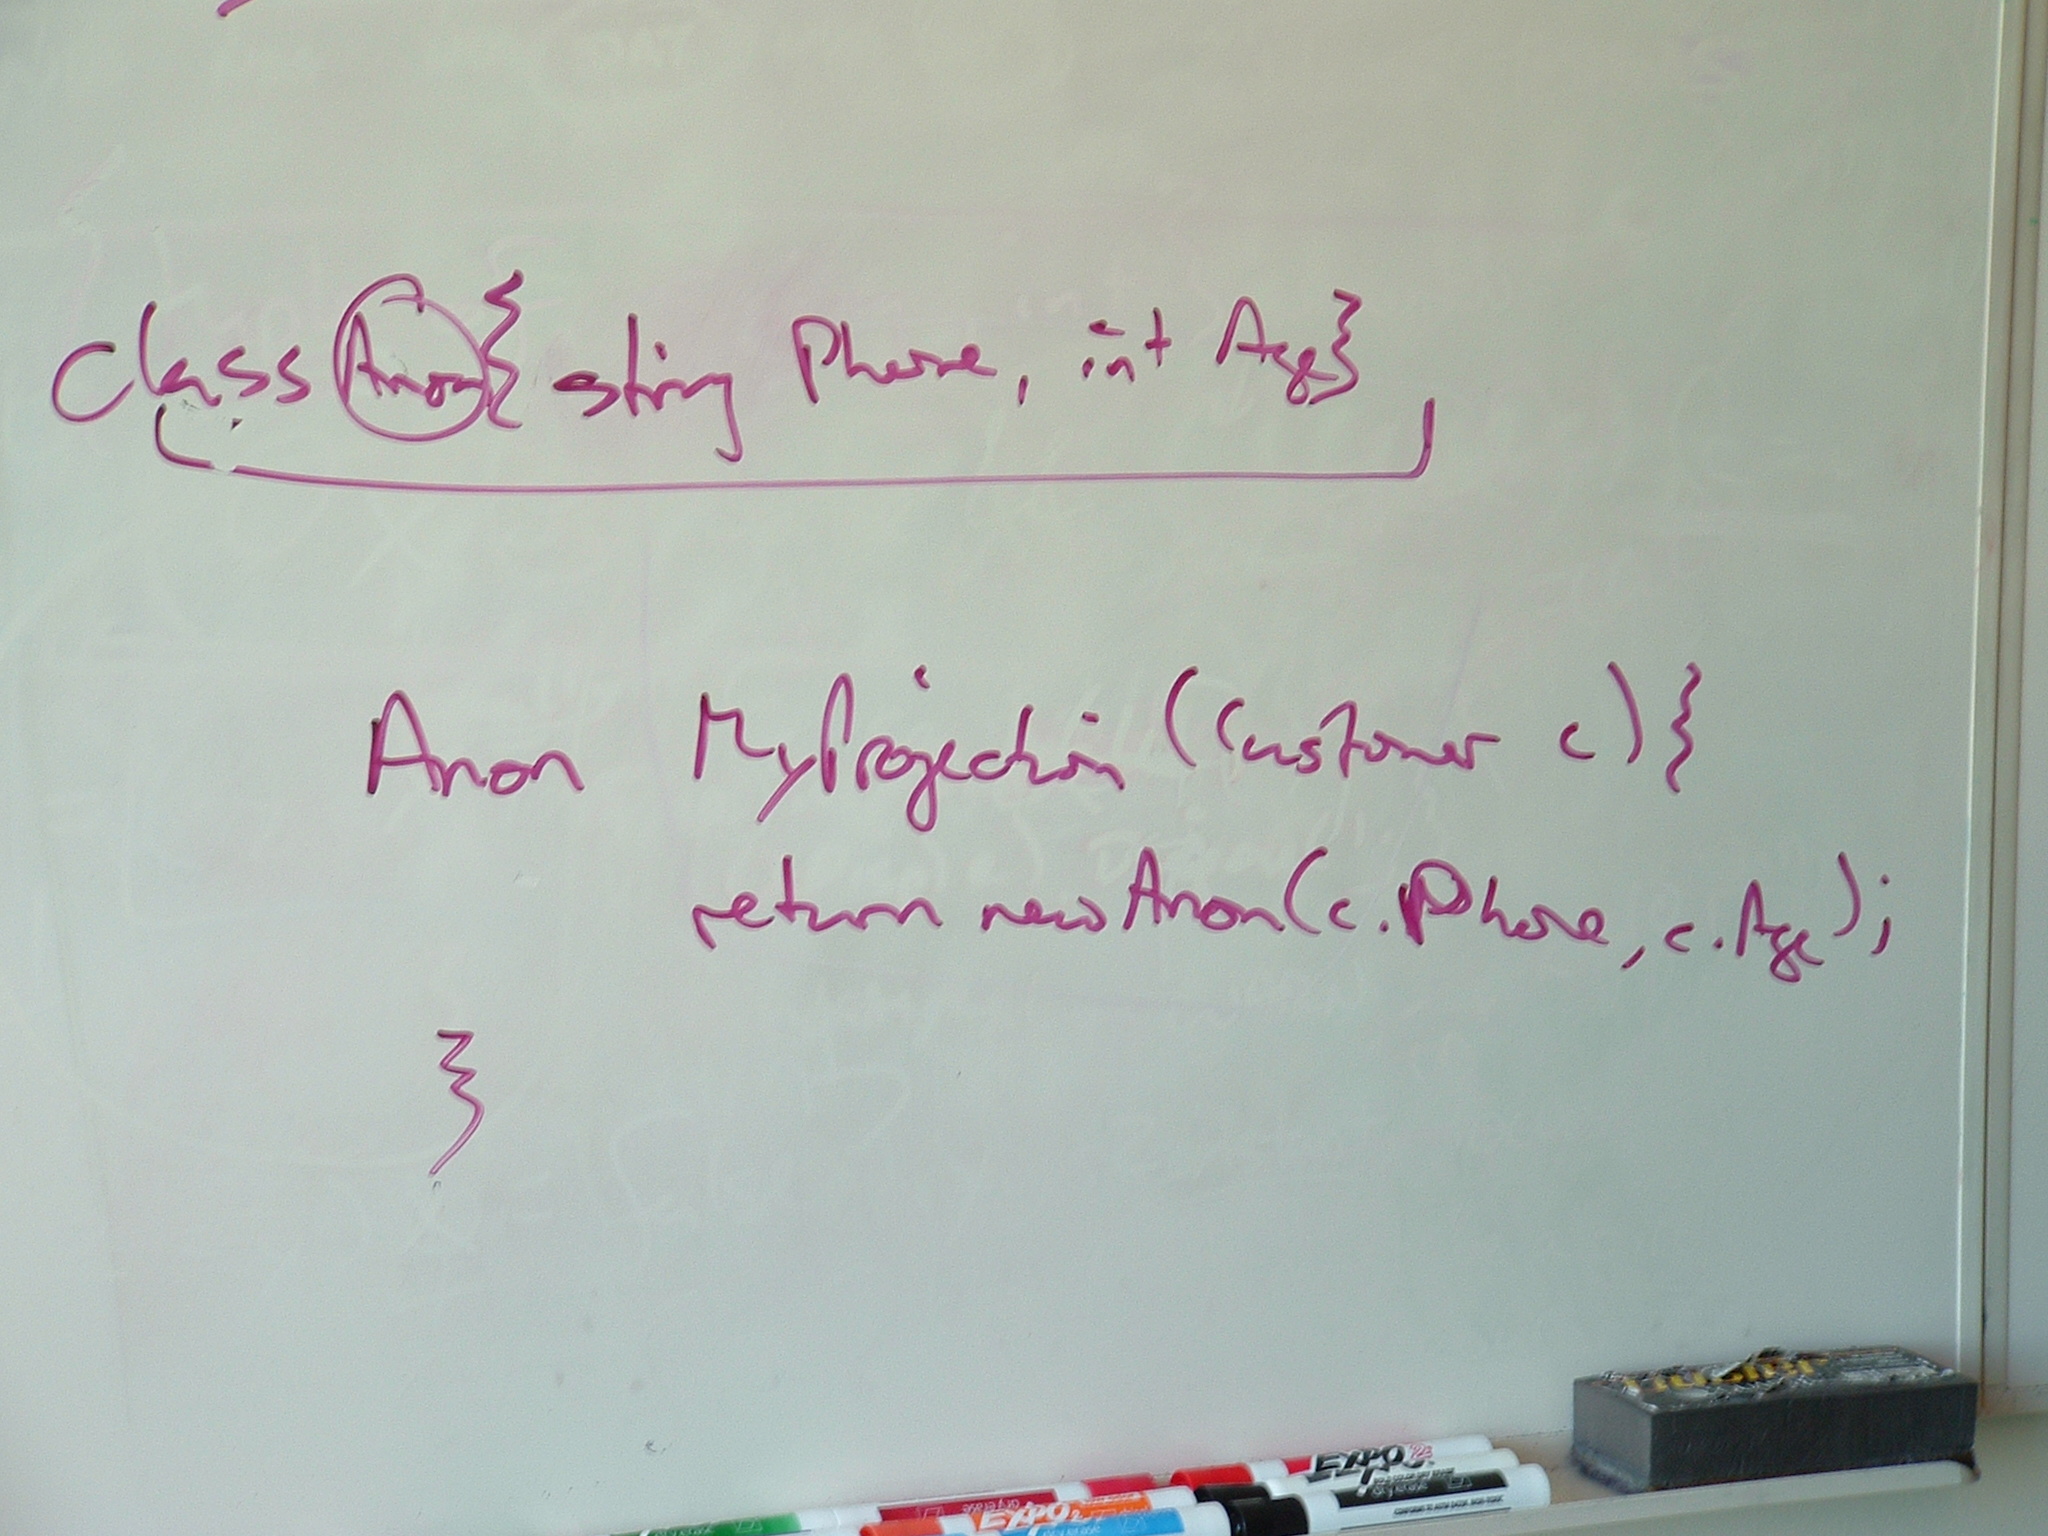 class Anon { string Phone, int Age }
Anon MyProjection (Customer c) {
return new Anon (c.Phone, c.Age);
}
EXPO
EXPO